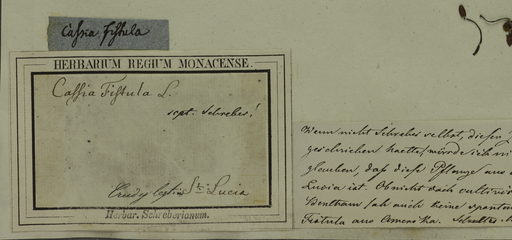 Cassia fistula
HERBARIUM REGIUM MONACENSE.
Cassia Fistula L.
scpt. Schreber!
legit in St. Lucia
Herbar. Schreberianum.
Wenn nicht Schreber selbst, diesen
geschrieben haette, würde ich ni
glauben, daß diese Pflanze aus
Lucia ist. Ob nicht auch cultivir
Bentham sah auch keine spontan
Fistula aus America.